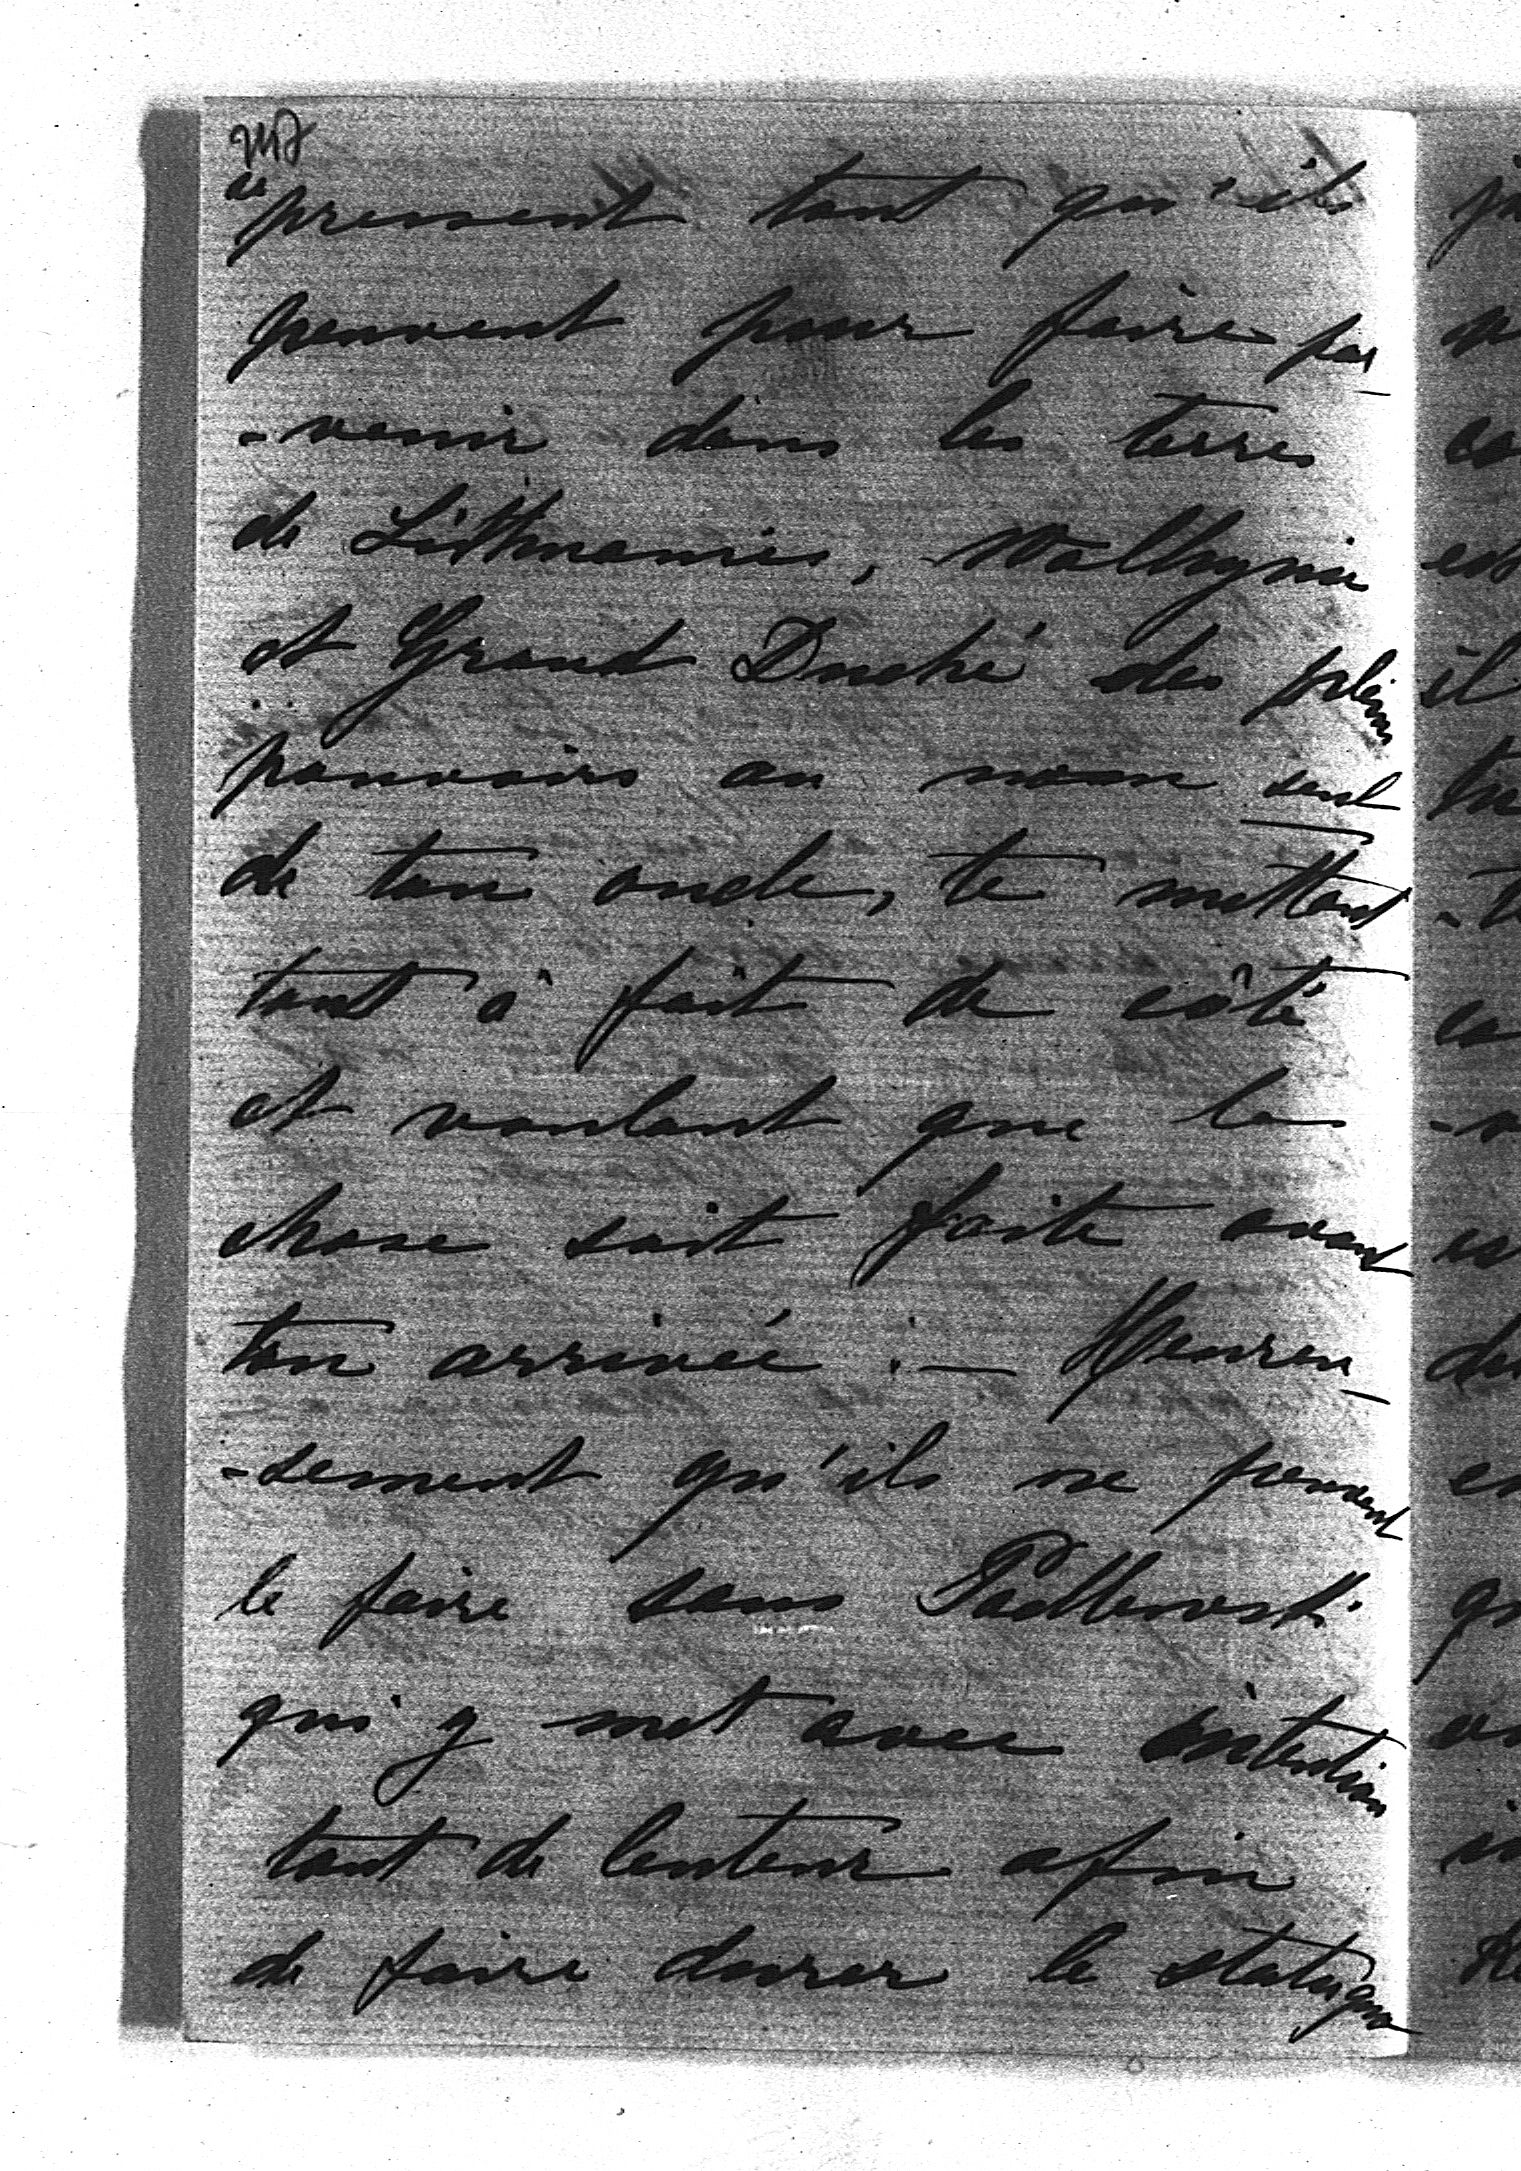 pressent tant qu'ils
peuvent pour faire par
-venir dans les terres
de Litthuanie, Wolhynie
et Grand Duché des pleins
pouvoirs au nom seul
de ton oncle, te mettant
tout à fait de côté
et voulant que la
chose soit faite avant
ton arrivée :— Heureu_
-sement qu'ils ne peuvent
le faire sans Padlewski
qui y met avec intention
tant de lenteur afin
de faire durer le statu quo